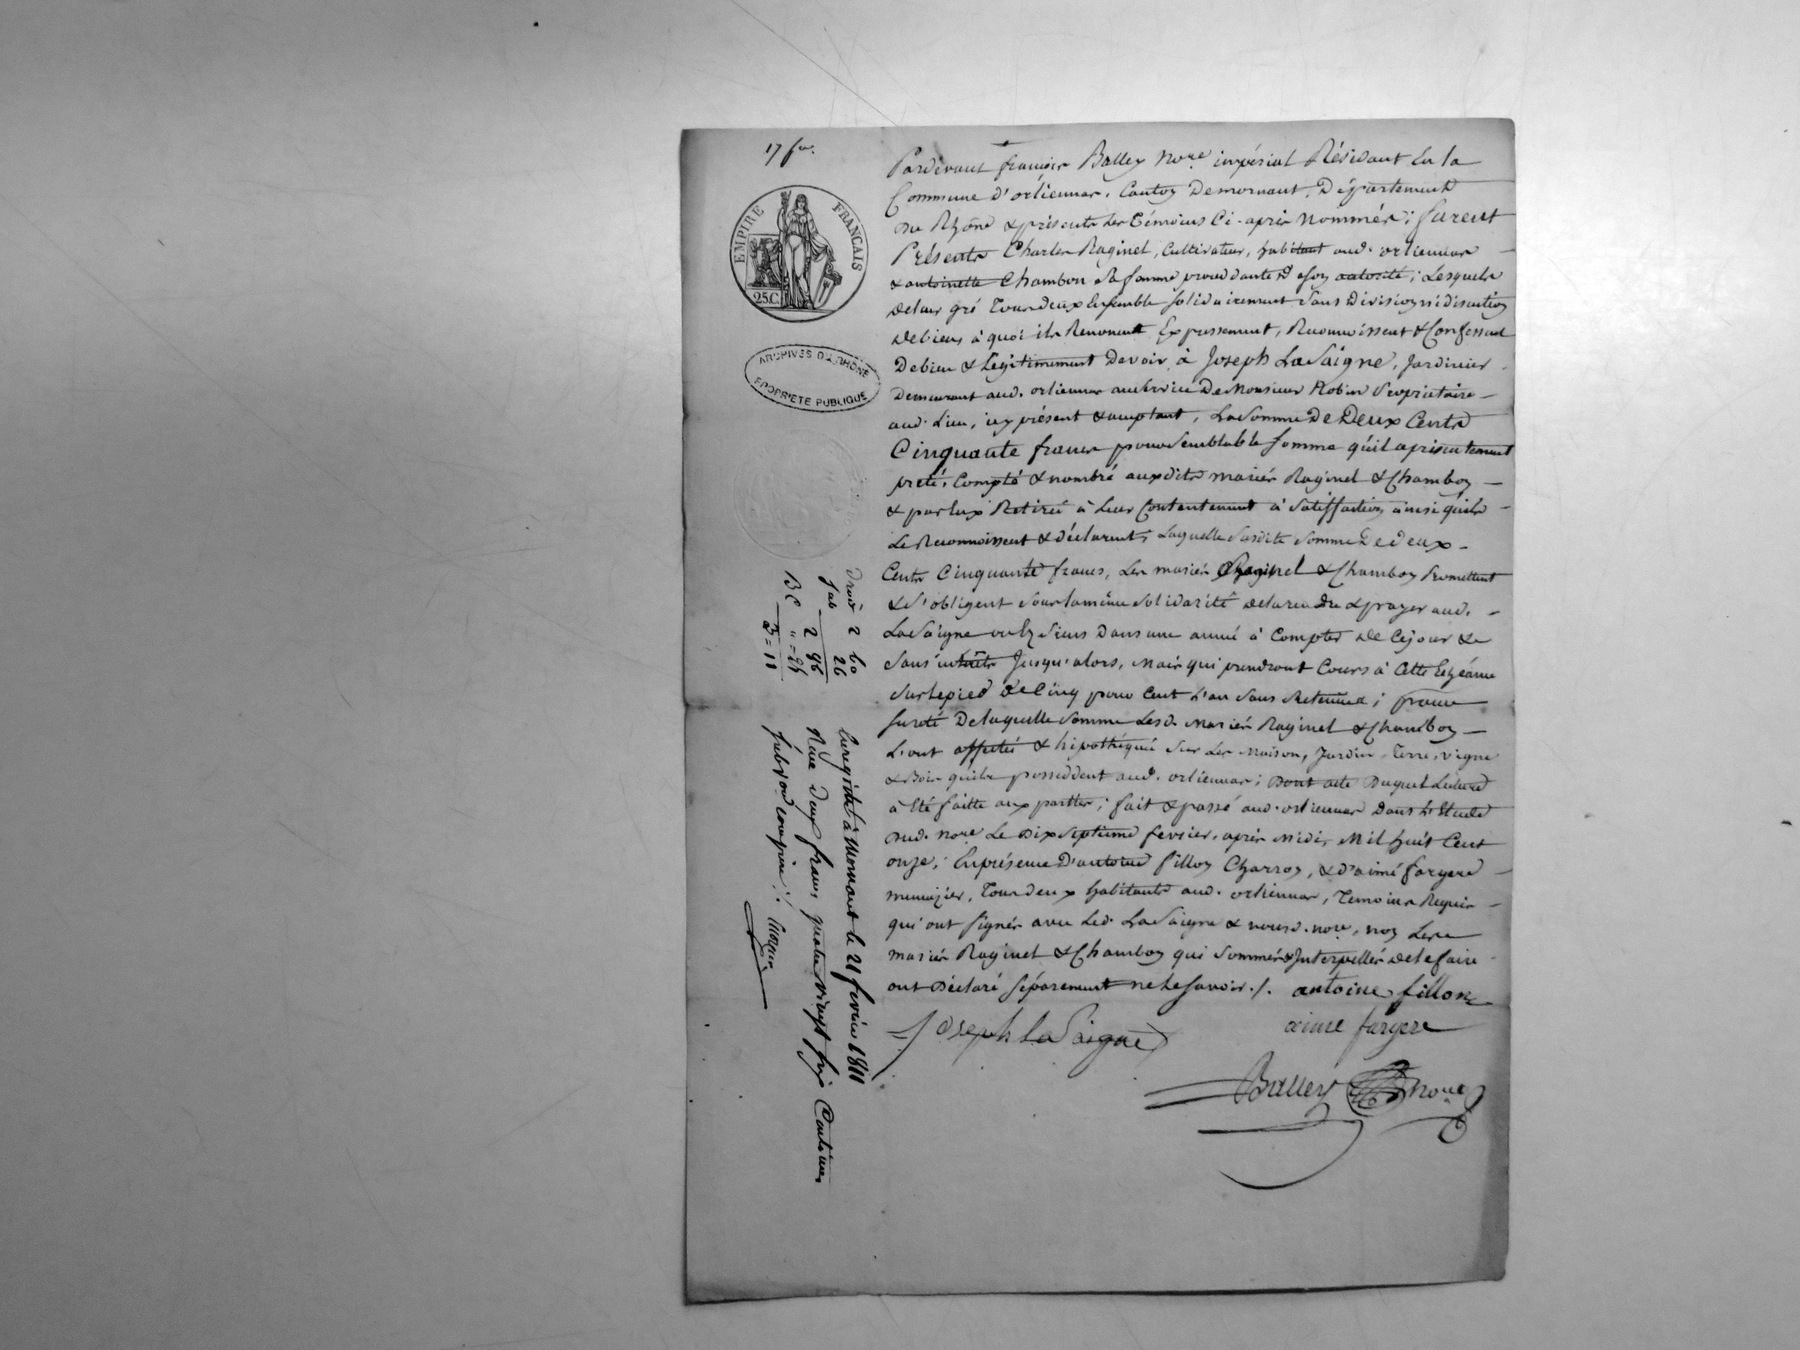 17 fer.
EMPIRE FRANÇAIS
25C.
ARCHIVES DU RHÔNE
PROPRIÉTÉ PUBLIQUE
Pardevant françois Balley Nore impérial Résidant En la
Commune d'orliennas, Canton Demornant, Département
Du Rhône & présents les Témoins Ci-après Nommés; furent
Présents Charles Raginel, Cultivateur, habitant aud. orliennas
& antoinette Chambon Sa femme procédante d son autorité; Lesquels
deleur gré Tous deux Ensemble solidairement Sans Division ni discution
de biens à quoi ils Renoncent Expressement, Reconnoissent & Confessent
Debien & Légitimement Devoir à Joseph La Saigne, Jardinier
Demeurant aud. orliennas auservice De Monsieur Robin Propriétaire
aud. Lieu, icy présent & acceptant, La Somme De Deux Cents
Cinquante francs pour Semblable somme qu'il a présentement
preté, Compté & nombré auxdits mariés Raginel & Chambon
& par Eux Retiré à Leur Contentement & Satisfaction ainsi qu'ils
Le Reconnoissent & déclarent, Laquelle Susdite Somme De deux
Cents Cinquante francs, Les mariés Raginel & Chambon Promettent
& S'obligent Sous la même Solidarité de la rendre & payer aud.
La Saigne ou Es Siens Dans une année à Compter de Cejour &
Sans intérêts Jusqu'alors, Mais qui prendront Cours à Cette Echéance
Sur le pied de Cinq pour Cent L'an Sans Retenue; pour
Sureté De laquelle Somme Lesd. Mariés Raginel & Chambon
L'ont affecté & hipothéqué Sur Les Maison, Jardin, Terre, Vigne
& Bois qu'ils possedent aud. orliennas; Dont acte Duquel Lecture
à Eté faitte aux parties; fait & passé aud. orliennas Dans L'Etude
dud. Nore Le Dix Septieme fevrier, après Midi, Mil huit Cent
onze; En présence D'antoine fillon Charron, & d'aimé fargere
menuizier, Tous deux habitants aud. orliennas, Temoins Requis
qui ont Signés avec Led. La Saigne & nousd. nore, non Les
mariés Raginel & Chambon qui Sommés & Interpellés de le faire
ont Déclaré Séparement ne Le Savoir ./. antoine fillon
aimé fargere
Joseph La Saigne
Balley nore
Droit 2 60
sub 26
2 86
BC " = 25
3 = 11
Enregistré à Mornant le 21 fevrier 1811
Reçu deux francs quatre vingt six Centimes
subvon comprise ./.